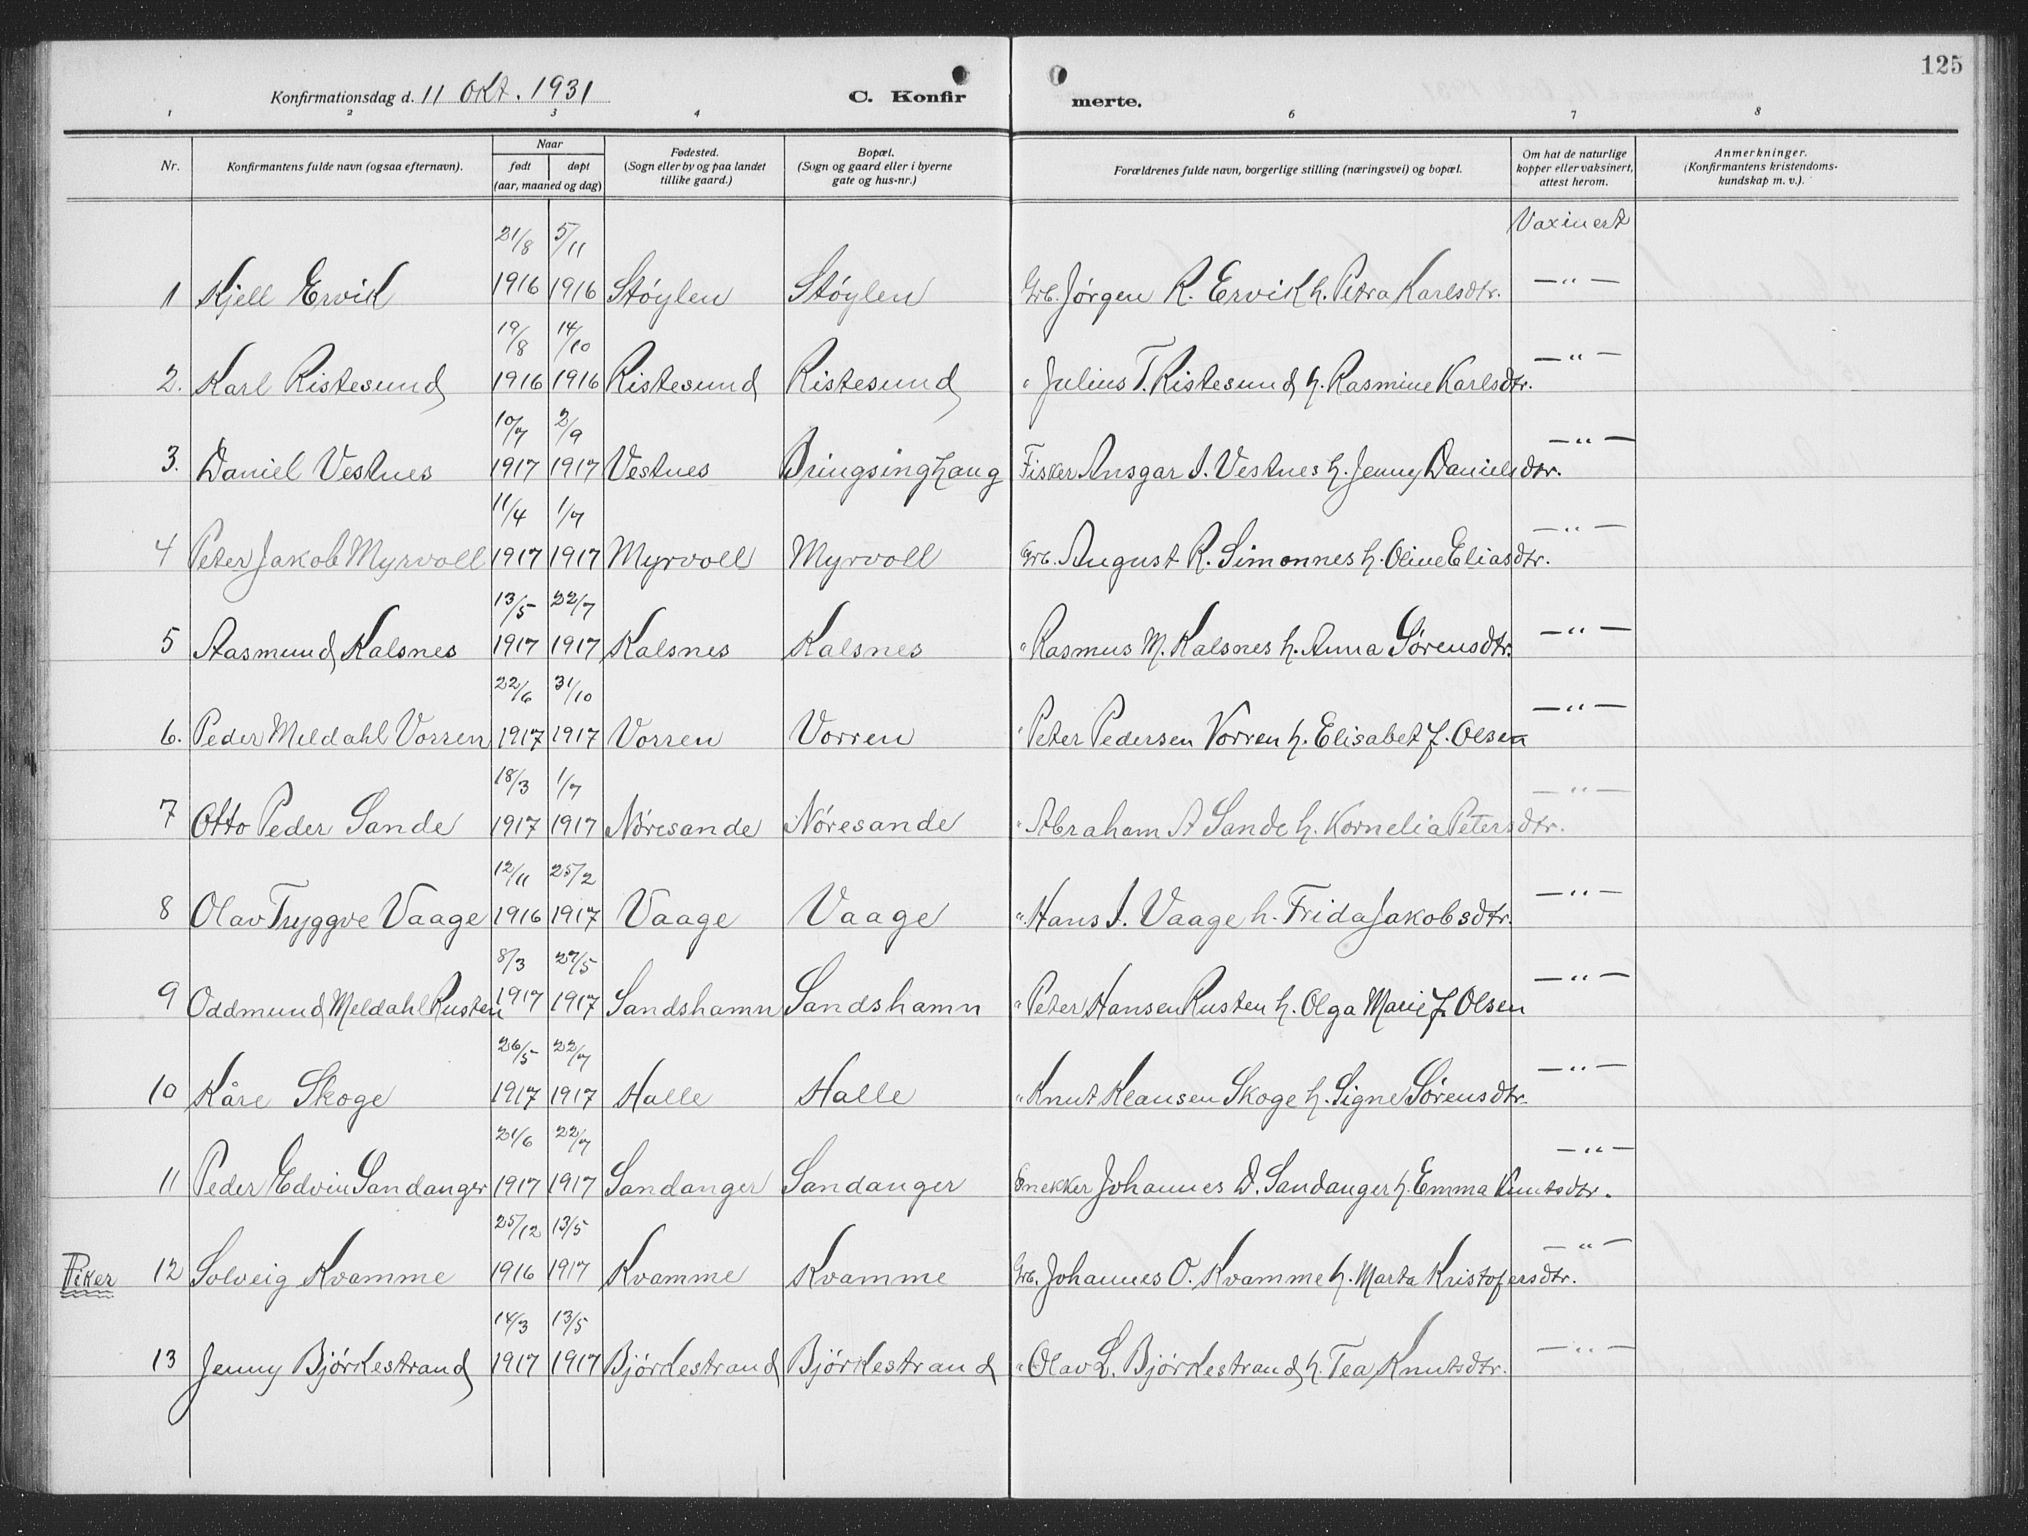 125
Konfirmationsdag d. 11 okt. 1931
C. Konfir merte.
1 2 3 4 5 6 7 8
Nr. Konfirmantens fulde navn (ogsaa efternavn). Naar født døpt (aar, maaned og dag) Fødested. (Sogn eller by og paa landet tillike gaard.) Bopæl. (Sogn og gaard eller i byerne gate og hus-nr.) Forældrenes fulde navn, borgerlige stilling (næringsvei) og bopæl. Om hat de naturlige kopper eller vaksinert, attest herom. Anmerkninger. (Konfirmantens kristendoms-kundskap m. v.).
Vaxinert
21/8 5/11
1 Kjell Ervik 1916 1916 Støylen Støylen Grb. Jørgen R. Ervik h. Petra Karlsdtr. —"—
19/8 14/10
2. Karl Ristesund 1916 1916 Ristesund Ristesund " Julius T. Ristesund h. Rasmine Karlsdtr. —"—
10/7 2/9
3. Daniel Vestnes 1917 1917 Vestnes Bringsinghaug Fisker Ansgar I. Vestnes h. Jenny Danielsdtr. —"—
11/4 1/7
4 Peter Jakob Myrvoll 1917 1917 Myrvoll Myrvoll Grb. August R. Simonnes h. Oline Eliasdtr. —"—
13/5 22/7
5 Aasmund Kalsnes 1917 1917 Kalsnes Kalsnes " Rasmus M. Kalsnes h. Anna Sørensdtr. —"—
22/6 31/10
6. Peder Meldahl Vorren 1917 1917 Vorren Vorren " Peter Pedersen Vorren h. Elisabet J. Olsen —"—
18/3 1/7
7 Otto Peder Sande 1917 1917 Nøresande Nøresande " Abraham A Sande h. Kornelia Petersdtr. —"—
12/11 25/2
8 Olav Tryggve Vaage 1916 1917 Vaage Vaage " Hans I. Vaage h. Frida Jakobsdtr. —"—
8/3 27/5
9 Oddmund Meldahl Rusten 1917 1917 Sandshamn Sandshamn " Peter Hansen Rusten h. Olga Marie J. Olsen —"—
26/5 22/7
10 Kåre Skoge 1917 1917 Halle Halle " Knut Klausen Skoge h. Signe Sørensdtr. —"—
21/6 22/7
11 Peder Edvin Sandanger 1917 1917 Sandanger Sandanger Snekker Johannes D. Sandanger h. Emma Knutsdtr. —"—
25/12 13/5
Piker 12 Solveig Kvamme 1916 1917 Kvamme Kvamme Grb. Johannes O. Kvamme h. Marta Kristofersdtr. —"—
14/3 13/5
13 Jenny Bjørkestrand 1917 1917 Bjørkestrand Bjørkestrand " Olav L. Bjørkestrand h. Tea Knutsdtr. —"—